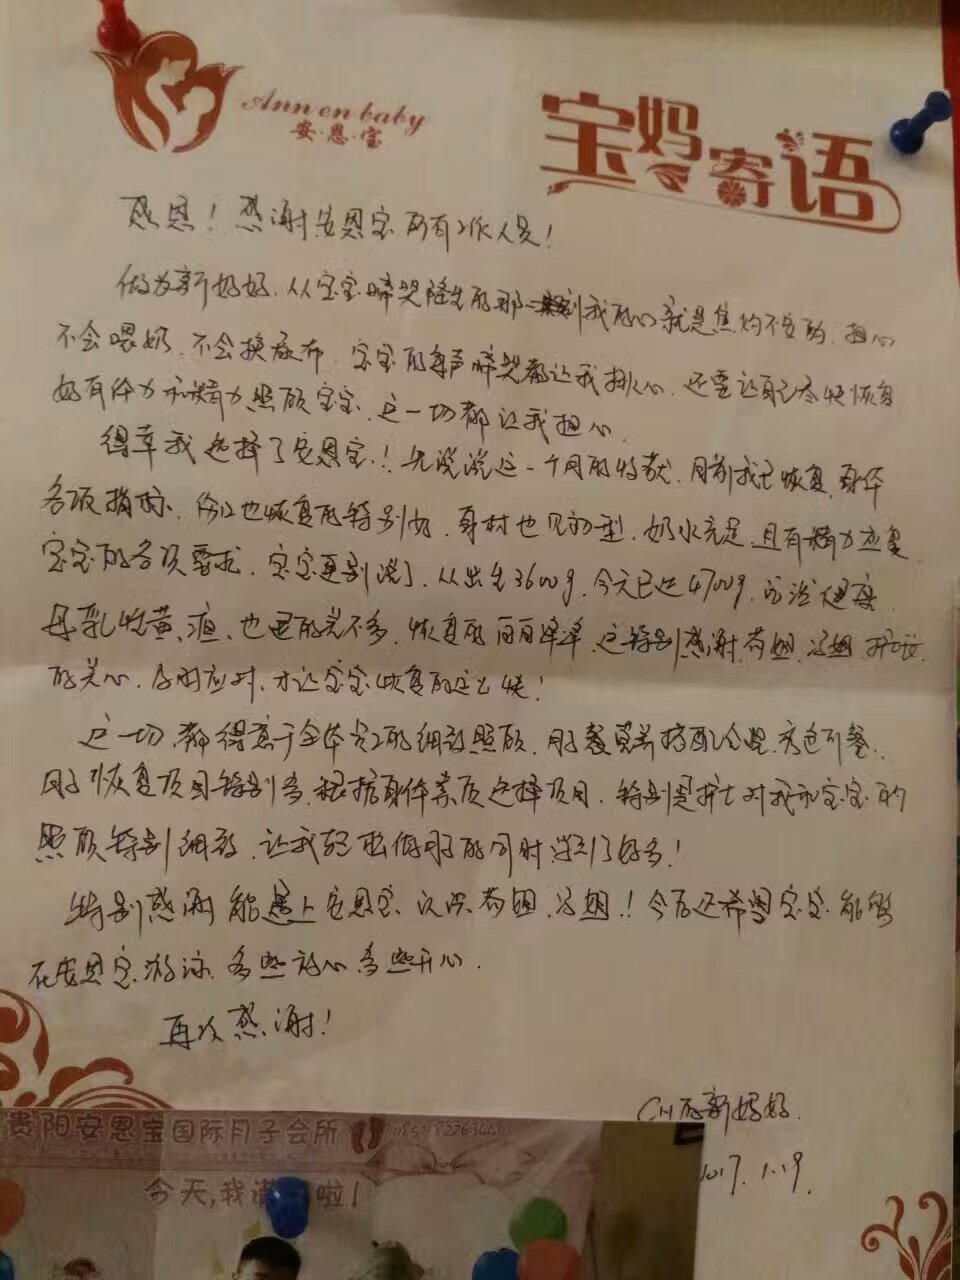 Ann en baby
安·恩·宝
宝妈寄语
感恩！感谢安恩宝所有工作人员！
做为新妈妈，从宝宝啼哭降生的那一刻我的心就是焦灼不安的，担心
不会喂奶，不会换尿布，宝宝的每声啼哭都让我揪心，还要让自己尽快恢复
好有体力和精力照顾宝宝，这一切都让我担心。
得幸我选择了安恩宝！先说说这一个月的收获，目前我已恢复身体
各项指标，伤口也恢复的特别好，身材也见初型，奶水充足，且有精力应复
宝宝的各项要求，宝宝更别说了，从出生3600g，今天已达4700g，
母乳性黄疸，也退的差不多，恢复的白白净净，这特别感谢
的关心，及时应对，才让宝宝恢复的这么快！
这一切都得意于全体员工的细致照顾，月子餐营养搭配合理，
月子恢复项目特别多，根据身体素质选择项目，特别是护士对我和宝宝的
照顾特别细致，让我轻松做月子的同时学到了好多！
特别感谢能遇上安恩宝，认识 今后还希望宝宝能够
在安恩宝游泳，多些放心多些开心。
再次感谢！
的新妈妈
2017.1.19
贵阳安恩宝国际月子会所
今天,我满 啦!